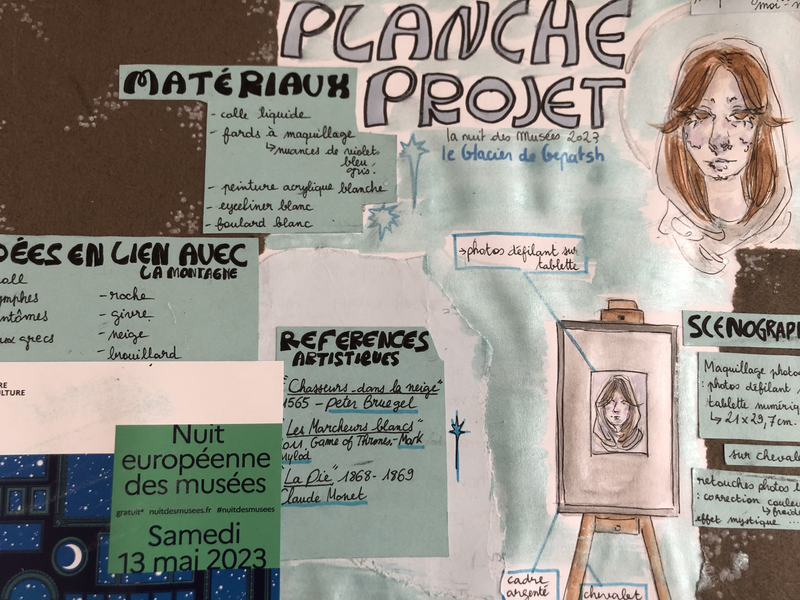 PLANCHE
PROJET
la nuit des Musées 2023
le Glacier de Gepatsh
moi - m
MATÉRIAUX
- colle liquide
- fards à maquillage
↳ nuances de violet
bleu,
gris.
- peinture acrylique blanche
- eyeliner blanc
- foulard blanc
DÉES EN LIEN AVEC
LA MONTAGNE
oll
ymphes
ntômes
ux grecs
- roche
- givre
- neige
- brouillard
→ photos défilant sur
tablette
REFERENCES
ARTISTIQUES
"Chasseurs dans la neige"
1565 - Peter Bruegel
"Les Marcheurs blancs"
2011, Game of Thrones - Mark
mylod
"La Pie" 1868-1869
Claude Monet
SCENOGRAPH
Maquillage photo
: photos défilant
tablette numériq
↳ 21 x 29,7 cm.
sur chevale
retouches photos
: correction couleu
↳ froide
effet mystique ...
cadre
argenté
chevalet
RE
ULTURE
Nuit
européenne
des musées
gratuit* nuitdesmusees.fr #nuitdesmusees
Samedi
13 mai 2023